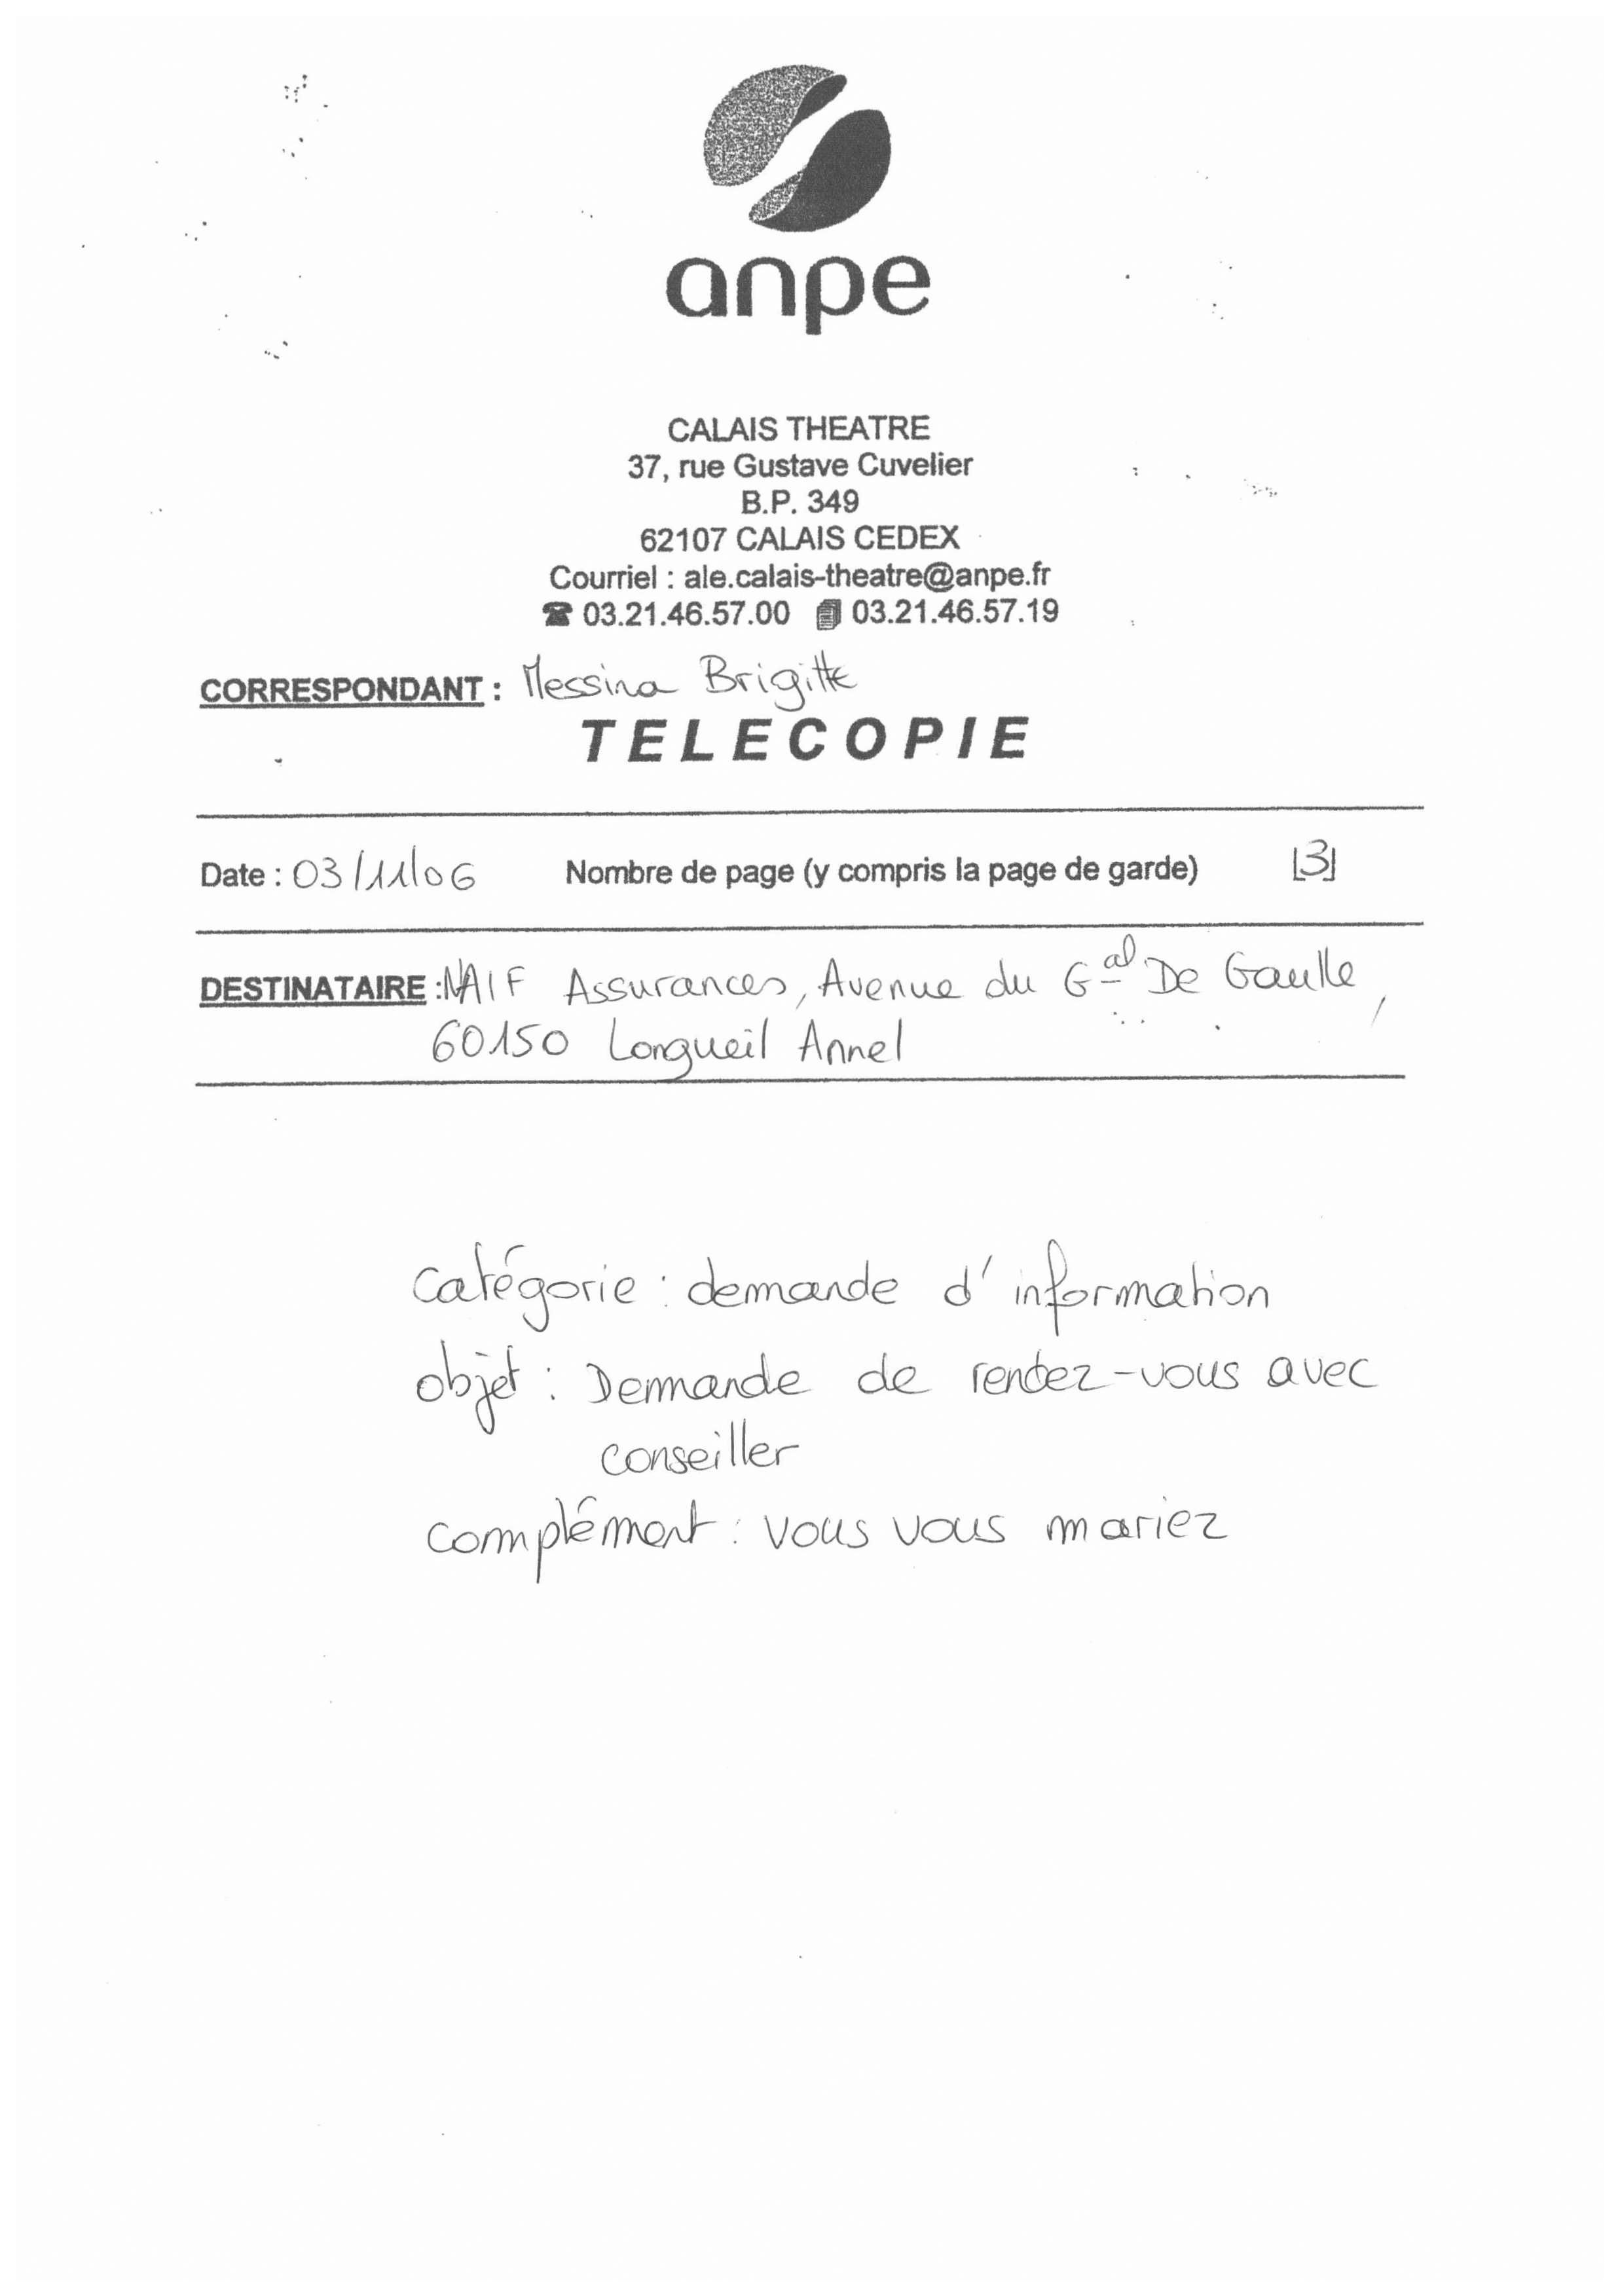 anpe
CALAIS THEATRE
37, rue Gustave Cuvelier
B.P. 349
62107 CALAIS CEDEX
Courriel : ale.calais-theatre@anpe.fr
☎ 03.21.46.57.00 03.21.46.57.19
CORRESPONDANT : Messina Brigitte
TELECOPIE
Date : 03/11/06 Nombre de page (y compris la page de garde) |3|
DESTINATAIRE : NAIF Assurances, Avenue du Gal De Gaulle,
60150 Longueil Annel
Catégorie : demande d'information
objet : Demande de rendez-vous avec
conseiller
complément : vous vous mariez